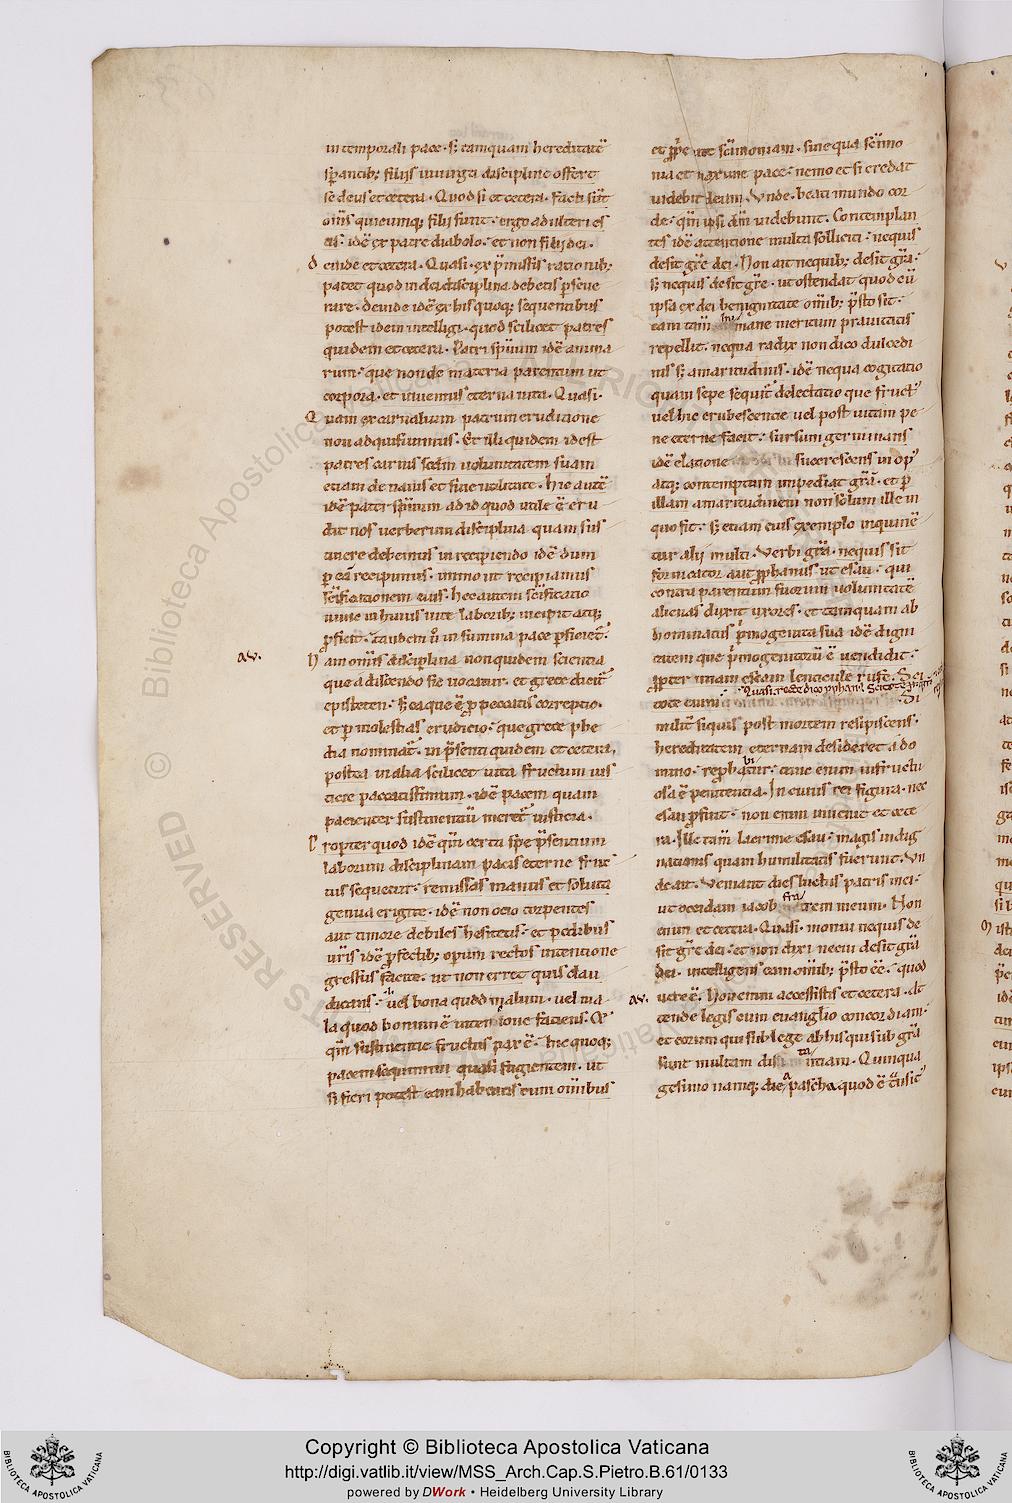 in temporali pace · sʒ tamquam hereditatē
spantibꝫ filijs iniungit discipline offert
se deus et cetera · Quod si et cetera · facti sūt
om̄s quicumqꝫ filij sunt · ergo adulteri es
tis · idē ex patre diabolo · et non filij dei ·
D einde et cetera · Quasi · ex p̄missis rationibꝫ
patet quod in dei disciplina debetis pseue
rare · deinde idē ex his quoqꝫ sequentibus
potest idem intelligi · quod scilicet patres
quidem et cetera · Patri sp̄uum idē anima
rum · que non de materia parentum ut
corpora · et uiuemus eterna uita · Quasi ·
Q uam ex carnalium patrum eruditione
non adquisiuimus · Et illi quidem id est
patres carnis scđm uoluntatem suam
etiam de nauis et siue utilitate · hic autē
idē pater sp̄uum ad id quod utile ē eru
dit nos uerberum disciplina quam sus
tinere debemus in recipiendo idē dum
p eā recipimus · immo ut recipiamus
sc̄ificationem eius · hec autem sc̄ificatio
nunc in huius uite laboribꝫ incipit atqꝫ
pficit · tandem ū in summa pace pficiet ·
av.
H am omīs disciplina non quidem scientia
que a discendo sic uocatur · et grece dicit̄
episteten · sʒ ea que ē p peccatis correptio ·
et p molestias eruditio · que grece phe
dia nominat̄ · in p̄senti quidem et cetera ·
postea in alia scilicet uita fructum ius
ticie paccatissimum · idē pacem quam
pacienter sustinentiū meret̄ iusticia ·
P ropter quod idē qm̄ certa spe p̄sentium
laborum disciplinam pacis eterne fruc
tus sequetur · remissas manus et soluta
genua erigite · idē non ocio torpentes
aut timore debiles hesitetis · et pedibus
ur̄is idē pfectibꝫ operum rectos intentione
gressus facite · ut non erret quis clau
dicans · uel bona quod malum · uel ma
la quod bonum ē intentione faciens · Et
qm̄ sustinentie fructus pax ē · hic quoqꝫ
pacem sequimini quasi fugientem · ut
si fieri potest eam habeatis cum om̄ibus
sc̄imoniam · sine qua sc̄imo
nia et pace · nemo et si credat
uidebit deum · Vnde · beati mundo cor
de · qm̄ ipsi dm̄ uidebunt · Contemplan
tes idē attentione multa solliciti · nequis
desit grē dei · Non ait nequibꝫ desit grā ·
sʒ nequis desit grē · ut ostendat quod eū
ipsa ex dei benignitate om̄ibꝫ p̄sto sit ·
tam tam̄ humane meritum prauitatis
repellit · nequa radix non dico dulcedi
nis sʒ amaritudinis · idē nequa cogitatio
quam sepe sequit̄ delectatio que fruct
uel hic erubescentie uel post uitam pe
ne eterne facit · sursum germinans
idē elatione succrescens in dp̄
atqꝫ contemptum impediat grā · et p
illam amaritudinem non solum ille in
quo fit · sʒ etiam eius exemplo inquinē
tur alij multi · Verbi grā · nequis sit
fornicator aut pphanus ut esau · qui
contra parentum suorum uoluntatē
alienas duxit uxores · et tamquam ab
hominatus p̄mogenita sua idē digni
tatem que p̄mogenitorū ē uendidit ·
ppter unam escam lenticule rufe · Sci
Quasi · recte dico pphan̄
tote enim · Si
milit̄ siquis post mortem resipiscens ·
hereditatem eternam desideret a do
mino · reprobabitur · tunc enim infructu
osa ē penitentia · In cuius rei figura · nec
esau pfuit · non enim inuenit et cete
ra · Ille tam̄ lacrime esau · magis indig
nationis quam humilitatis fuerunt · Vn
de ait · Veniant dies luctus patris mei ·
ut occidam iacob fratrem meum · Non
enim et cetera · Quasi · monui nequis de
sit grē dei · et non dixi necui desit grā
dei · intelligens eam om̄ibꝫ p̄sto eē · quod
av.
uere ē · Non enim accessistis et cetera · At
tende legis cum euanglio concordiam ·
et eorum qui sub lege ab his qui sub grā
sunt multam distantiam · Quinqua
gesimo namqꝫ die a pascha quod ē
Copyright © Biblioteca Apostolica Vaticana
http://digi.vatlib.it/view/MSS_Arch.Cap.S.Pietro.B.61/0133
powered by DWork • Heidelberg University Library